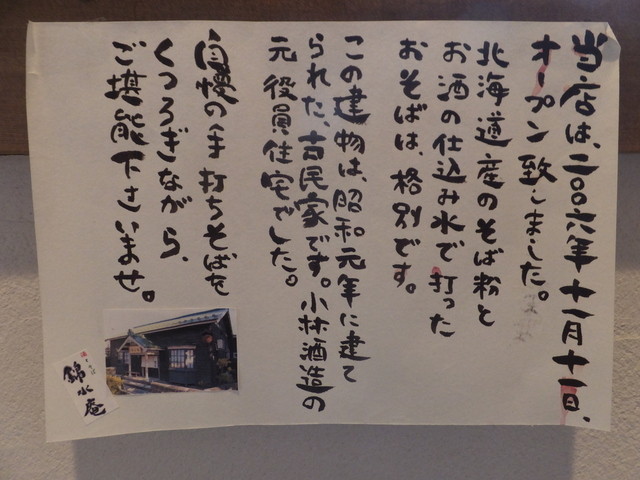 当店は、二〇〇六年十一月十一日、
オープン致しました。
北海道産のそば粉と
お酒の仕込み水で打った
おそばは、格別です。
この建物は、昭和元年に建て
られた、古民家です。小林酒造の
元役員住宅でした。
自慢の手打ちそばを
くつろぎながら、
ご堪能下さいませ。
錦水庵